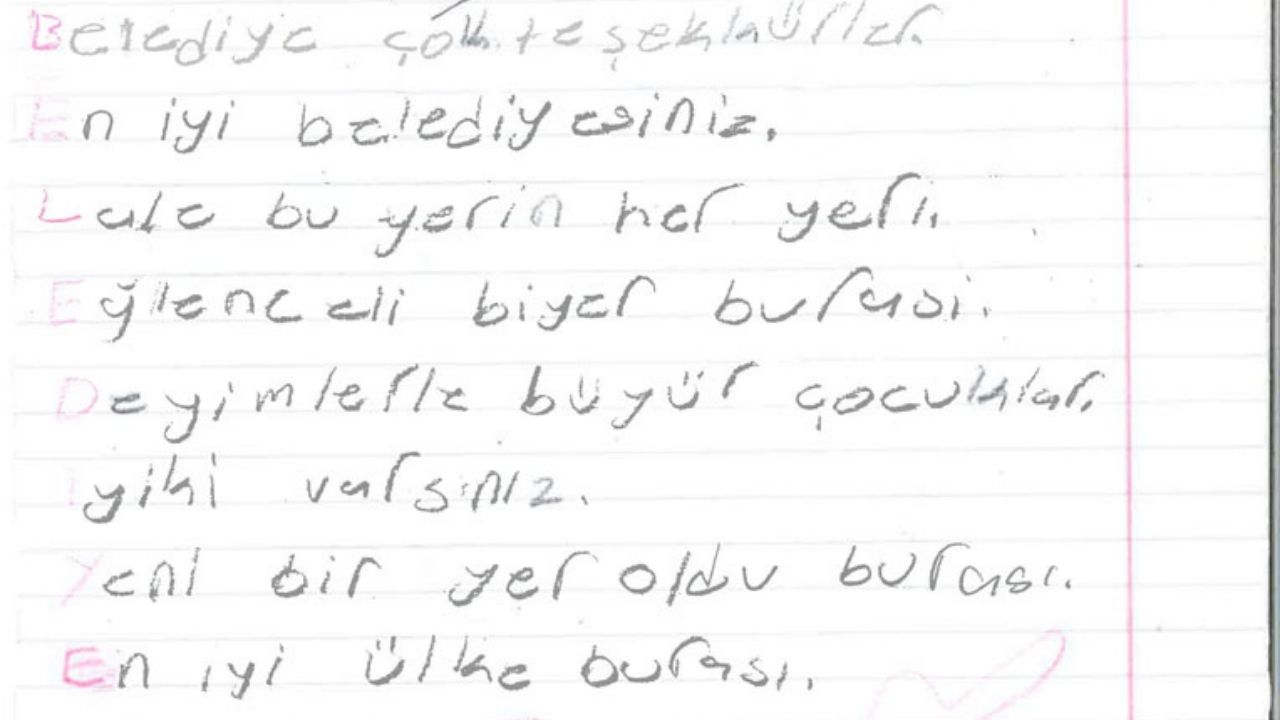 Belediye çok teşekkürler.
En iyi belediyesiniz.
Lale bu yerin her yeri.
Eğlenceli biyer burasi.
Deyimlerle büyür çocuklar.
Iyiki varsınız.
Yeni bir yer oldu burası.
En iyi ülke burası.